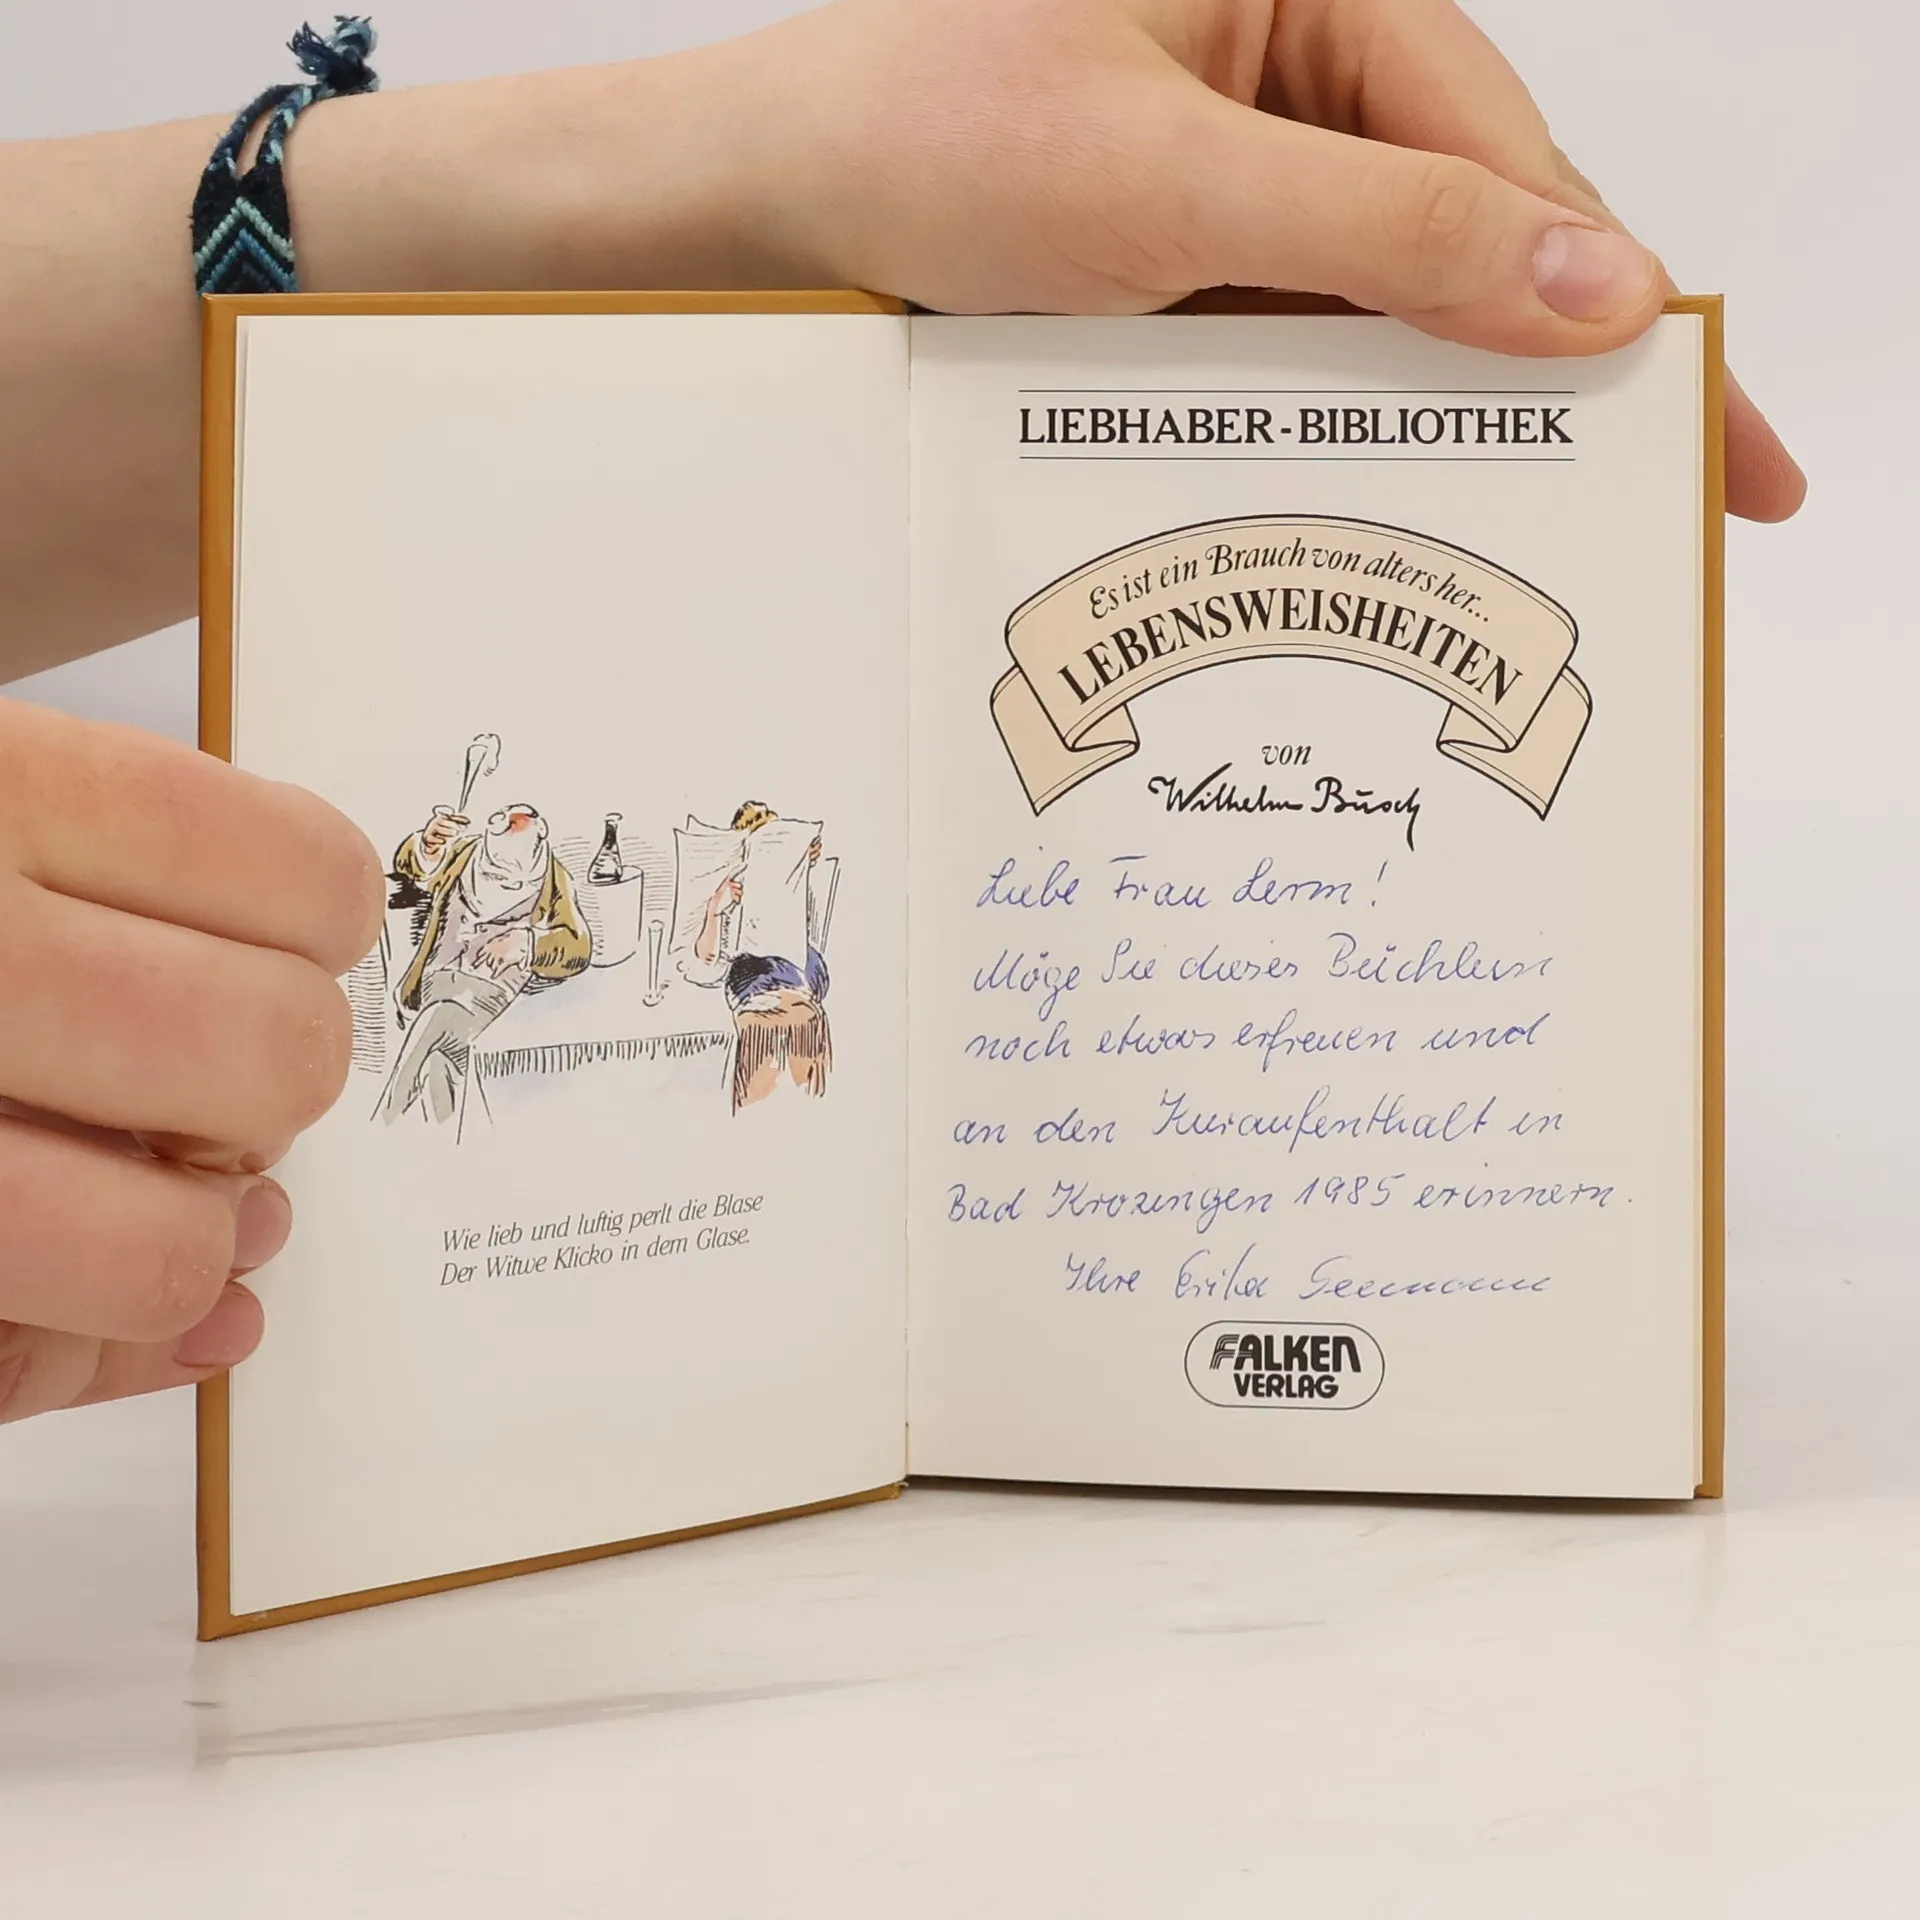 Wie lieb und luftig perlt die Blase
Der Witwe Klicko in dem Glase.
LIEBHABER-BIBLIOTHEK
Es ist ein Brauch von alters her...
LEBENSWEISHEITEN
von
Wilhelm Busch
Liebe Frau Lerm!
Möge Sie dieses Büchlein
noch etwas erfreuen und
an den Kuraufenthalt in
Bad Krozingen 1985 erinnern.
Ihre Erika Seemann
FALKEN
VERLAG